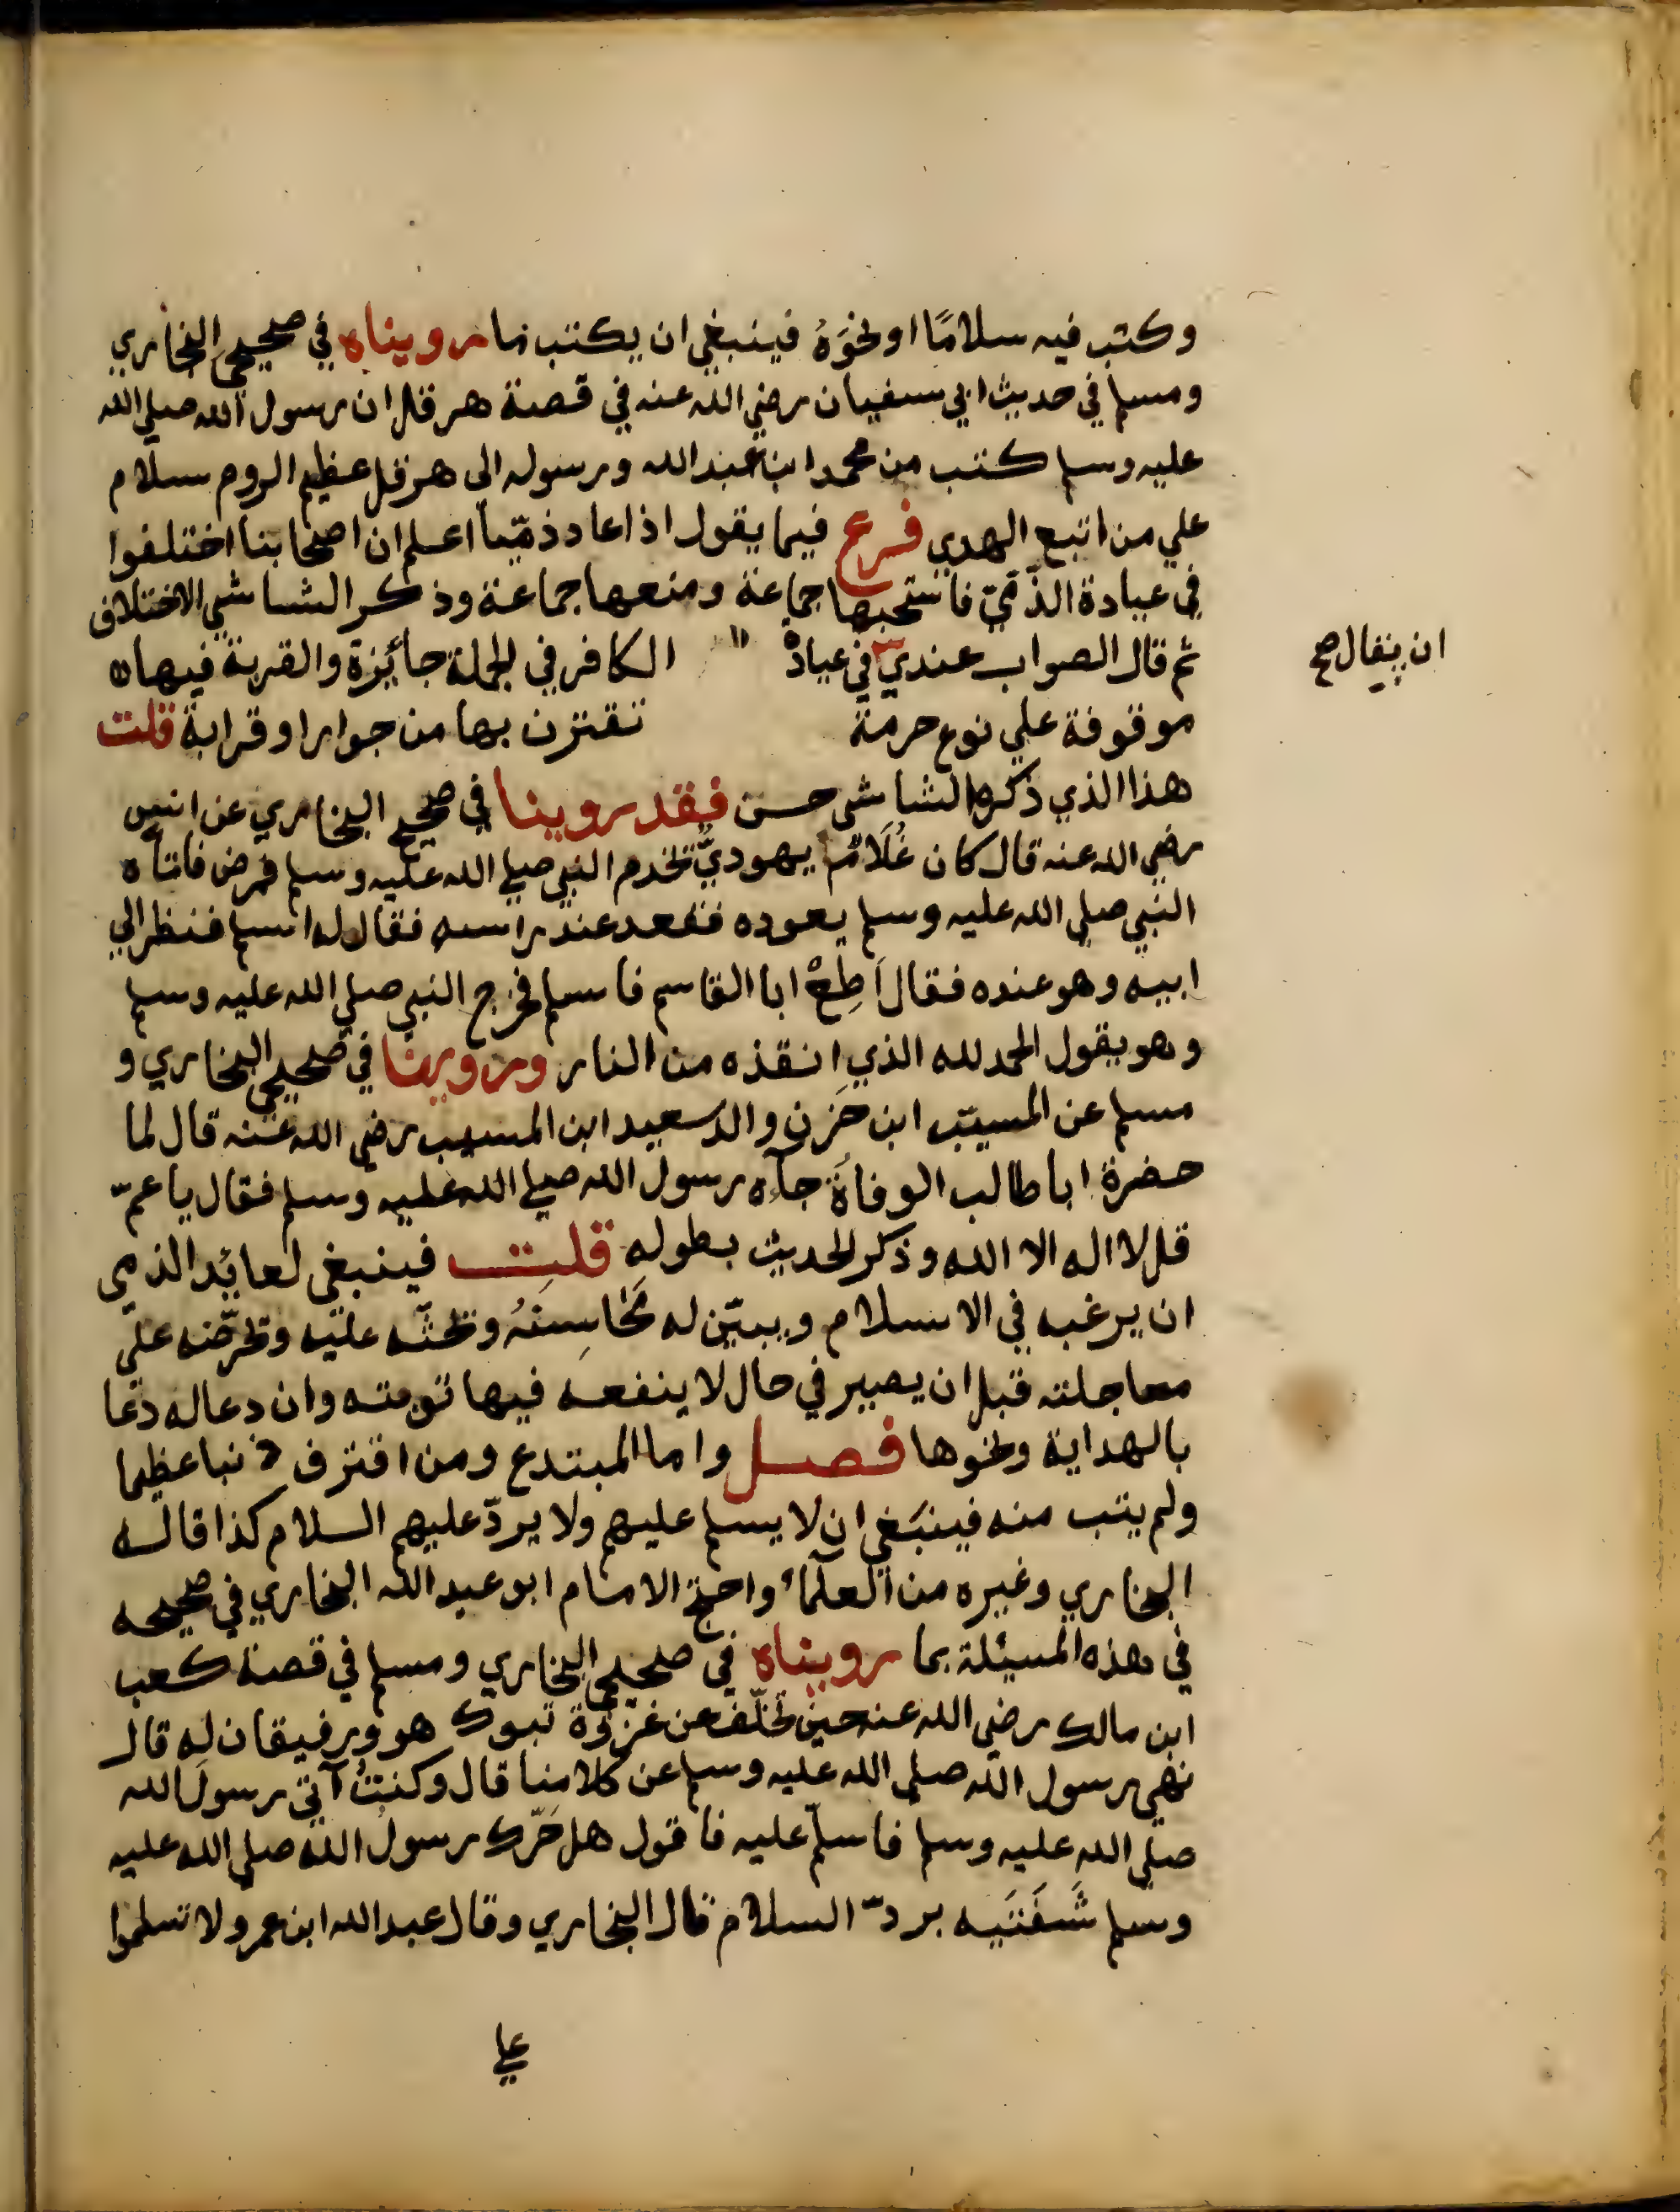 وكتب فيه سلامًا او نحوَهُ فينبغي ان يكتب ما رويناه في صحيحي البخاري
ومسلم في حديث ابي سفيان رضي الله عنه في قصة هرقل ان رسول الله صلي الله
عليه وسلم كتب من محمد ابن عبد الله ورسوله الى هرقل عظيم الروم سلام
علي من اتبع الهدي فرع فيما يقول اذا عاد ذمّيا اعلم ان اصحابنا اختلفوا
في عيادة الذّمّيّ فاستحبها جماعة ومنعها جماعة وذكر الشاشي الاختلاف
ثم قال الصواب عندي في عيادة الكافر في الجملة جائزة والقربة فيها
ان يقال صح
موقوفة علي نوع حرمة تقترن بها من جوار او قرابة قلت
هذا الذي ذكره الشاشي حسن فقد روينا في صحيح البخاري عن انس
رضي الله عنه قال كان غُلَامٌ يهوديٌّ يخدم النبي صلي الله عليه وسلم فمرض فاتاه
النبي صلي الله عليه وسلم يعوده فقعد عند راسه فقال له اسلم فنظر الي
ابيه وهو عنده فقال اَطِعْ ابا القاسم فاسلم فخرج النبي صلي الله عليه وسلم
وهو يقول الحمد لله الذي انقذه من النار وروينا في صحيحي البخاري و
مسلم عن المسيّب ابن حَزن والد سعيد ابن المسيب رضي الله عنه قال لما
حضرة ابا طالب الوفاة جآءه رسول الله صلي الله عليه وسلم فقال يا عمّ
قل لا اله الا الله وذكر الحديث بطوله قلت فينبغي لعائد الذمي
ان يرغبه في الاسلام ويبيّن له محَاسِنَهُ ويحثّه عليه ويحرّضه علي
معاجلته قبل ان يصير في حال لا ينفعه فيها توبته وان دعا له دعا
بالهداية ونحوها فصل واما المبتدع ومن اقترف ذنبا عظيما
ولم يتب منه فينبَغي ان لا يسلم عليهم ولا يردّ عليهم السلام كذا قاله
البخاري وغيره من العلماء واحتج الامام ابو عبد الله البخاري في صحيحه
في هذه المسيئلة بما رويناه في صحيحي البخاري ومسلم في قصة كعب
ابن مالك رضي الله عنه حين تخلّف عن غزوة تبوك هو ورفيقان له قال
نهي رسول الله صلي الله عليه وسلم عن كلامنا قال وكنتُ آتي رسول الله
صلي الله عليه وسلم فاسلّم عليه فاقول هل حَرّك رسول الله صلي الله عليه
وسلم شَفَتَيه بردّ السلام قال البخاري وقال عبد الله ابن عمرو لا تسلموا
علي